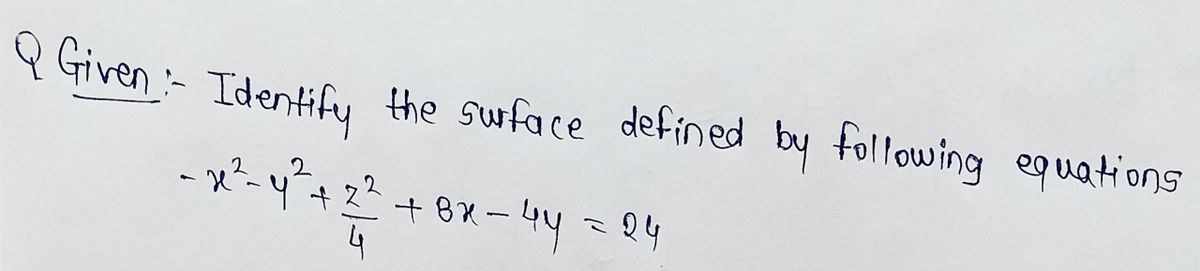 Q Given :- Identify the surface defined by following equations
- x² - y² + z²/4 + 8x - 4y = 24